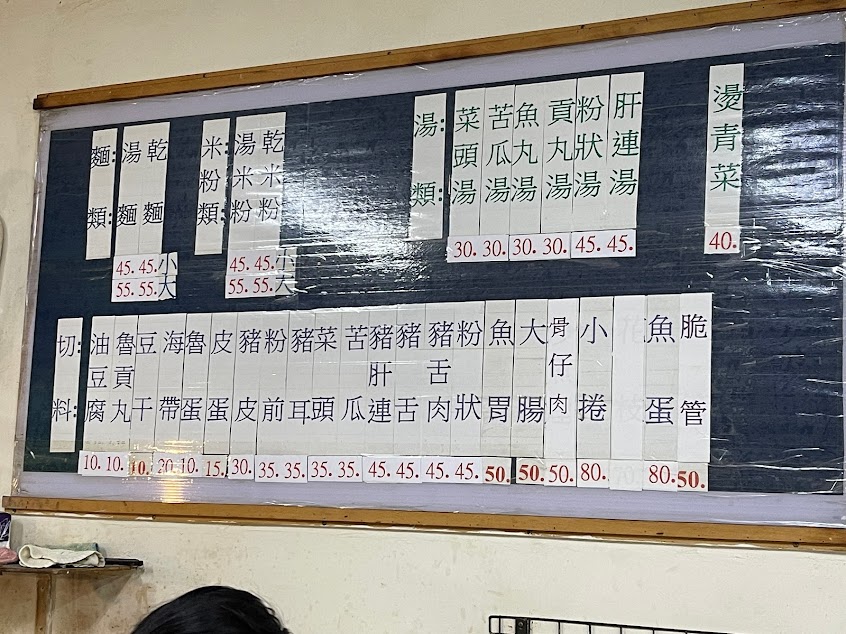 麵類:
湯麵 45. 小 55. 大
乾麵 45. 小 55. 大
米粉類:
湯米粉 45. 小 55. 大
乾米粉 45. 小 55. 大
湯類:
菜頭湯 30.
苦瓜湯 30.
魚丸湯 30.
貢丸湯 30.
粉狀湯 45.
肝連湯 45.
燙青菜 40.
切料:
油豆腐 10.
魯貢丸 10.
豆干 10.
海帶 20.
魯蛋 10.
皮蛋 15.
豬皮 30.
粉前 35.
豬耳 35.
菜頭 35.
苦瓜 35.
豬肝連 45.
豬舌 45.
豬舌肉 45.
粉狀 45.
魚胃 50.
大腸 50.
骨仔肉 50.
小捲 80.
花枝 70.
魚蛋 80.
脆管 50.